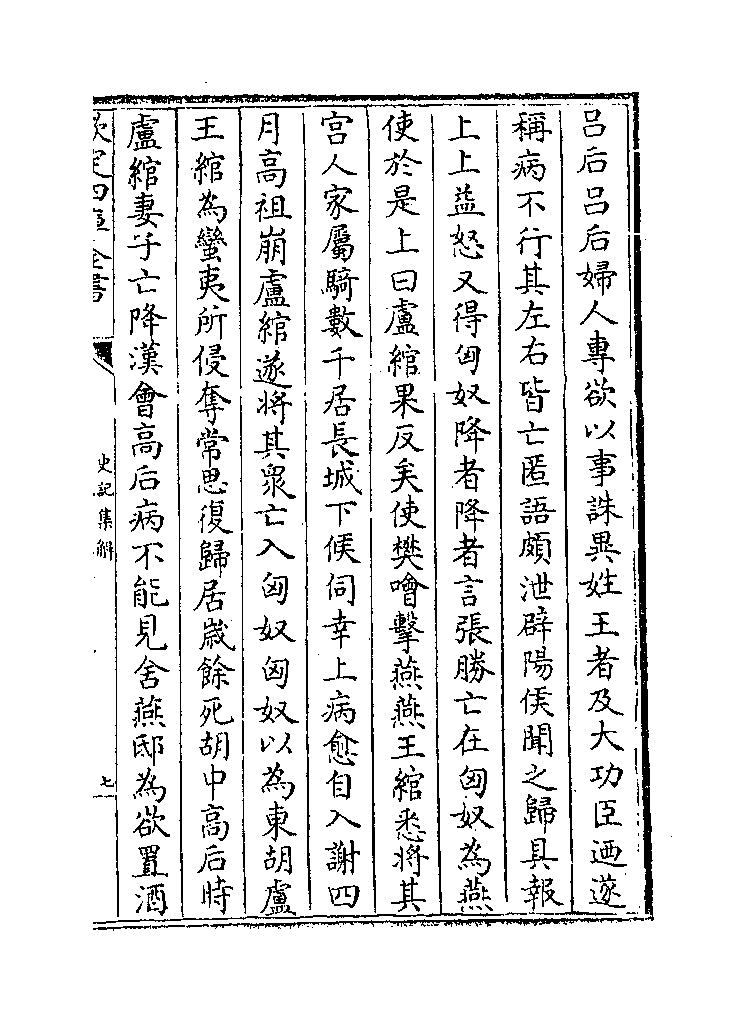 吕后吕后婦人專欲以事誅異姓王者及大功臣廼遂
稱病不行其左右皆亡匿語頗泄辟陽侯聞之歸具報
上上益怒又得匈奴降者降者言張勝亡在匈奴為燕
使於是上曰盧綰果反矣使樊噲擊燕燕王綰悉將其
宫人家屬騎數千居長城下候伺幸上病愈自入謝四
月高祖崩盧綰遂將其衆亡入匈奴匈奴以為東胡盧
王綰為蠻夷所侵奪常思復歸居嵗餘死胡中高后時
盧綰妻子亡降漢會高后病不能見舍燕邸為欲置酒
欽定四庫全書
史記集解
七